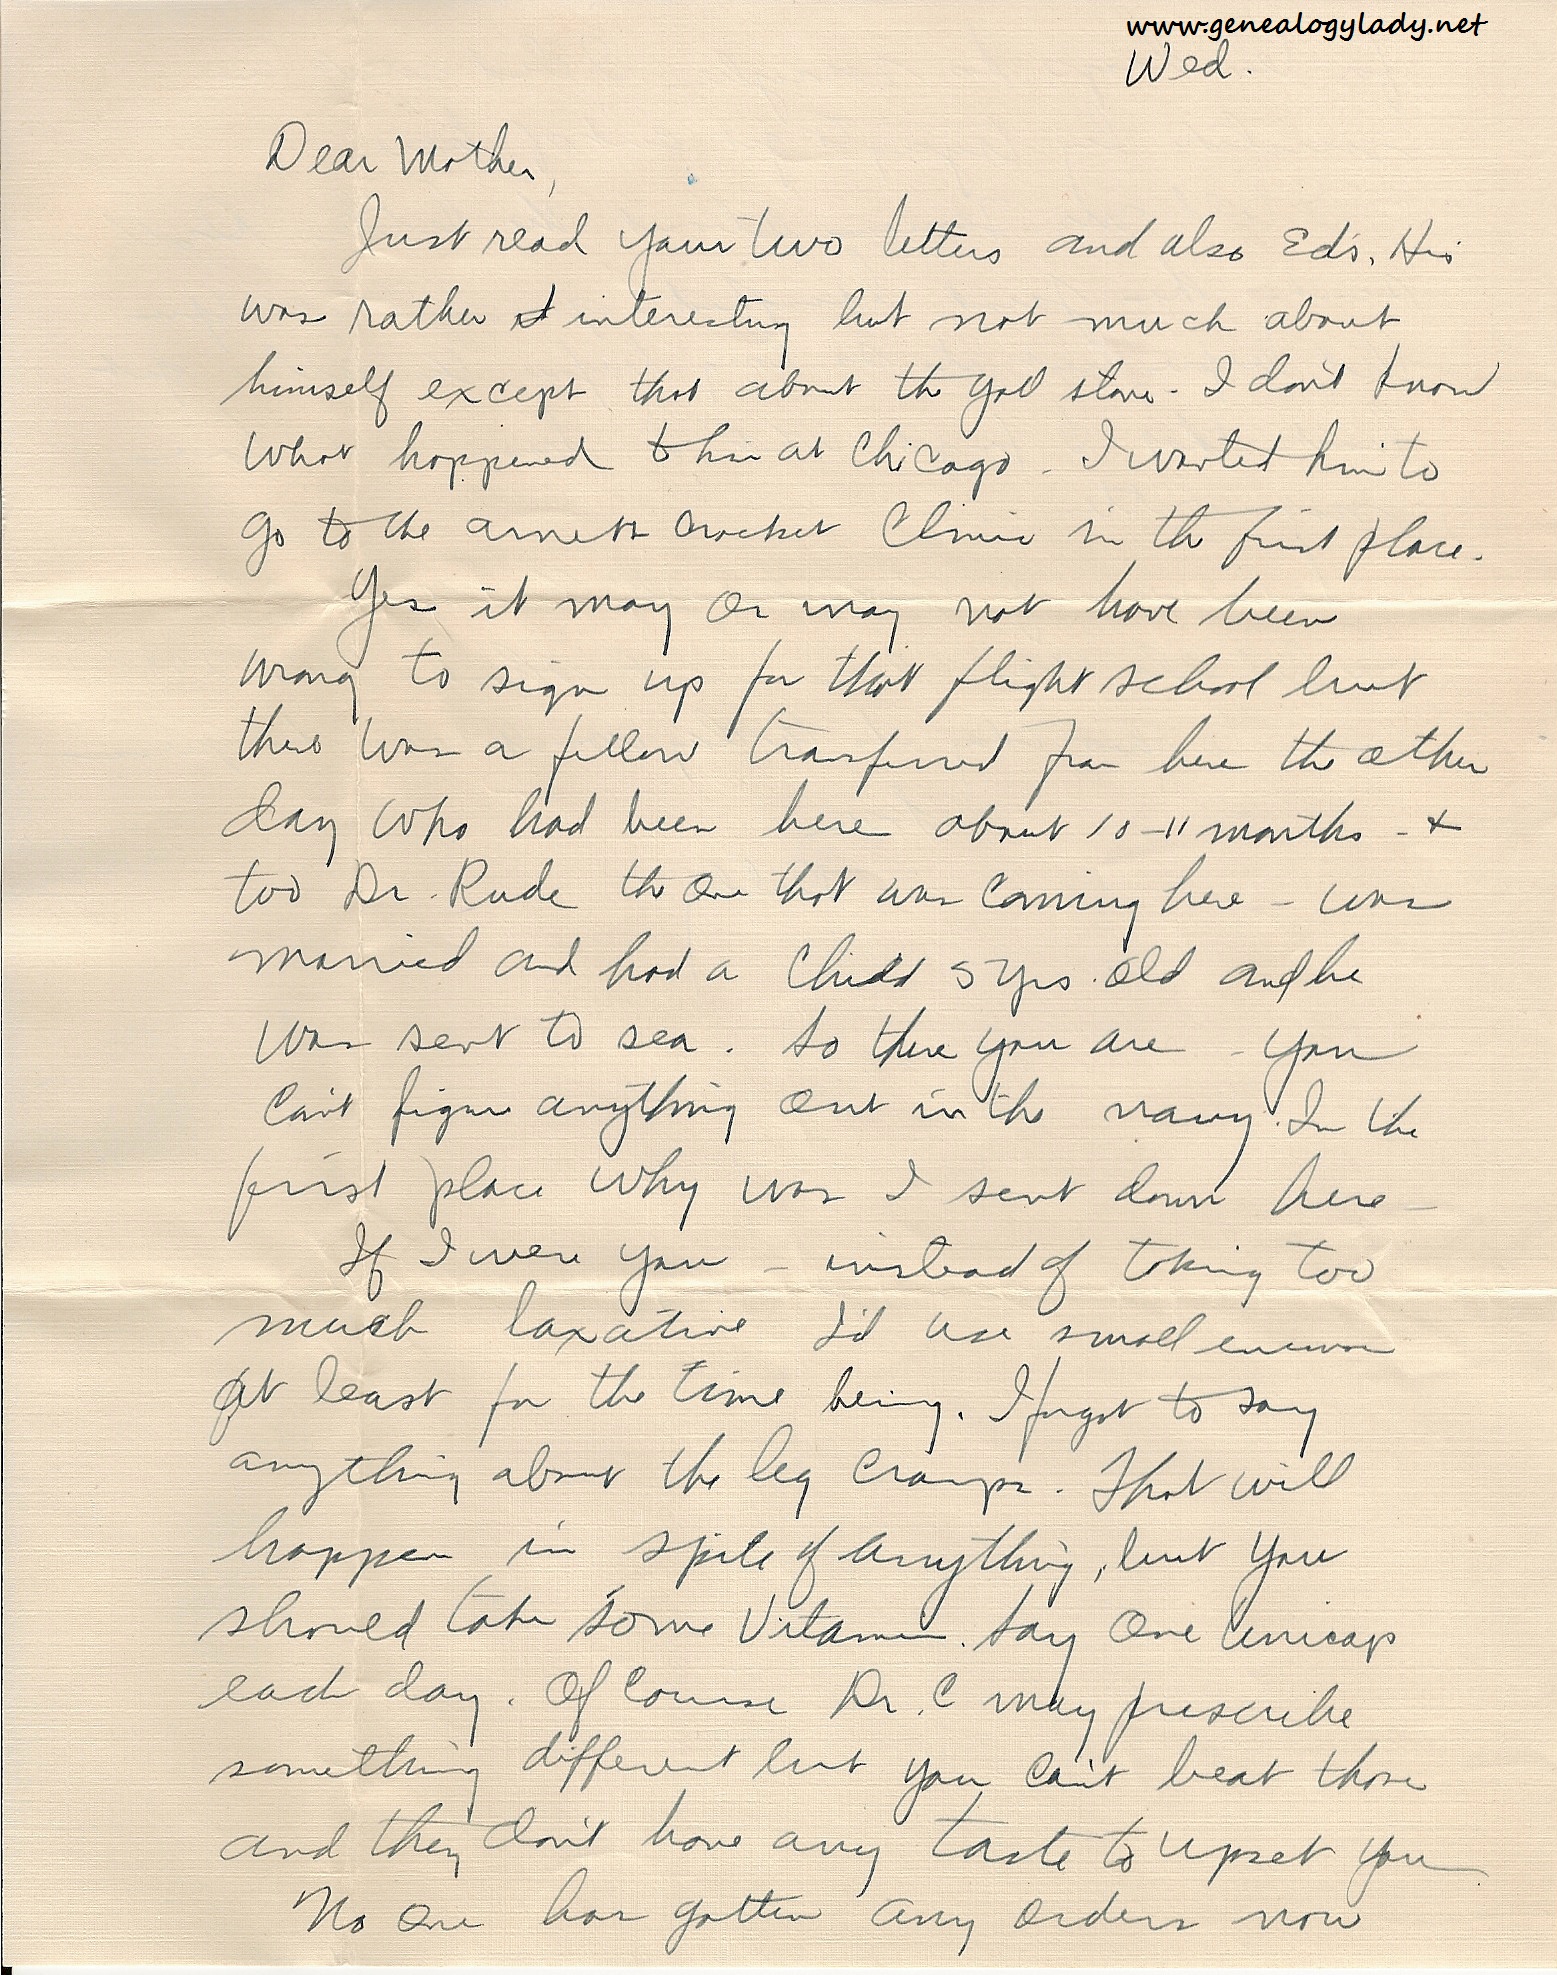 www.genealogylady.net
Wed.
Dear Mother,
Just read your two letters and also Ed's. His
was rather interesting but not much about
himself except that about the gall stone - I don't know
what happened to him at Chicago - I wanted him to
go to the Arnett Crocket Clinic in the first place.
Yes it may or may not have been
wrong to sign up for that flight school but
there was a fellow transferred from here the other
day who had been here about 10-11 months - &
too Dr. Rude the one that was coming here - was
married and had a child 5 yrs. old and he
was sent to sea. So there you are - you
can't figure anything out in the navy. In the
first place why was I sent down here -
If I were you - instead of taking too
much laxative I'd use small enema
at least for the time being. I forgot to say
anything about the leg cramps. That will
happen in spite of anything, but you
should take some vitamin. Say one Unicap
each day. Of course Dr. C may prescribe
something different but you can't beat those
and they don't have any taste to upset you
No one has gotten any orders now